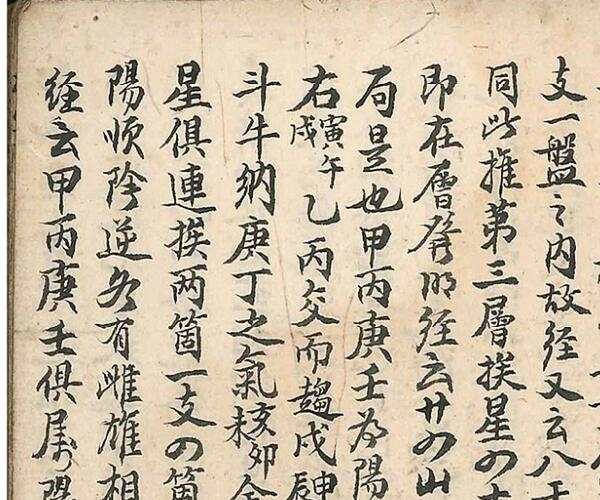 支一盤之内故经又云八
同此推第三層挨星の
即在層發明经云廿四山
局是也甲丙庚壬为陽
右寅午戌乙丙交而趨戌辰
斗牛納庚丁之氣亥卯未金
星俱連挨两箇一支の箇
陽顺陰逆各有雌雄相
经云甲丙庚壬俱属陽